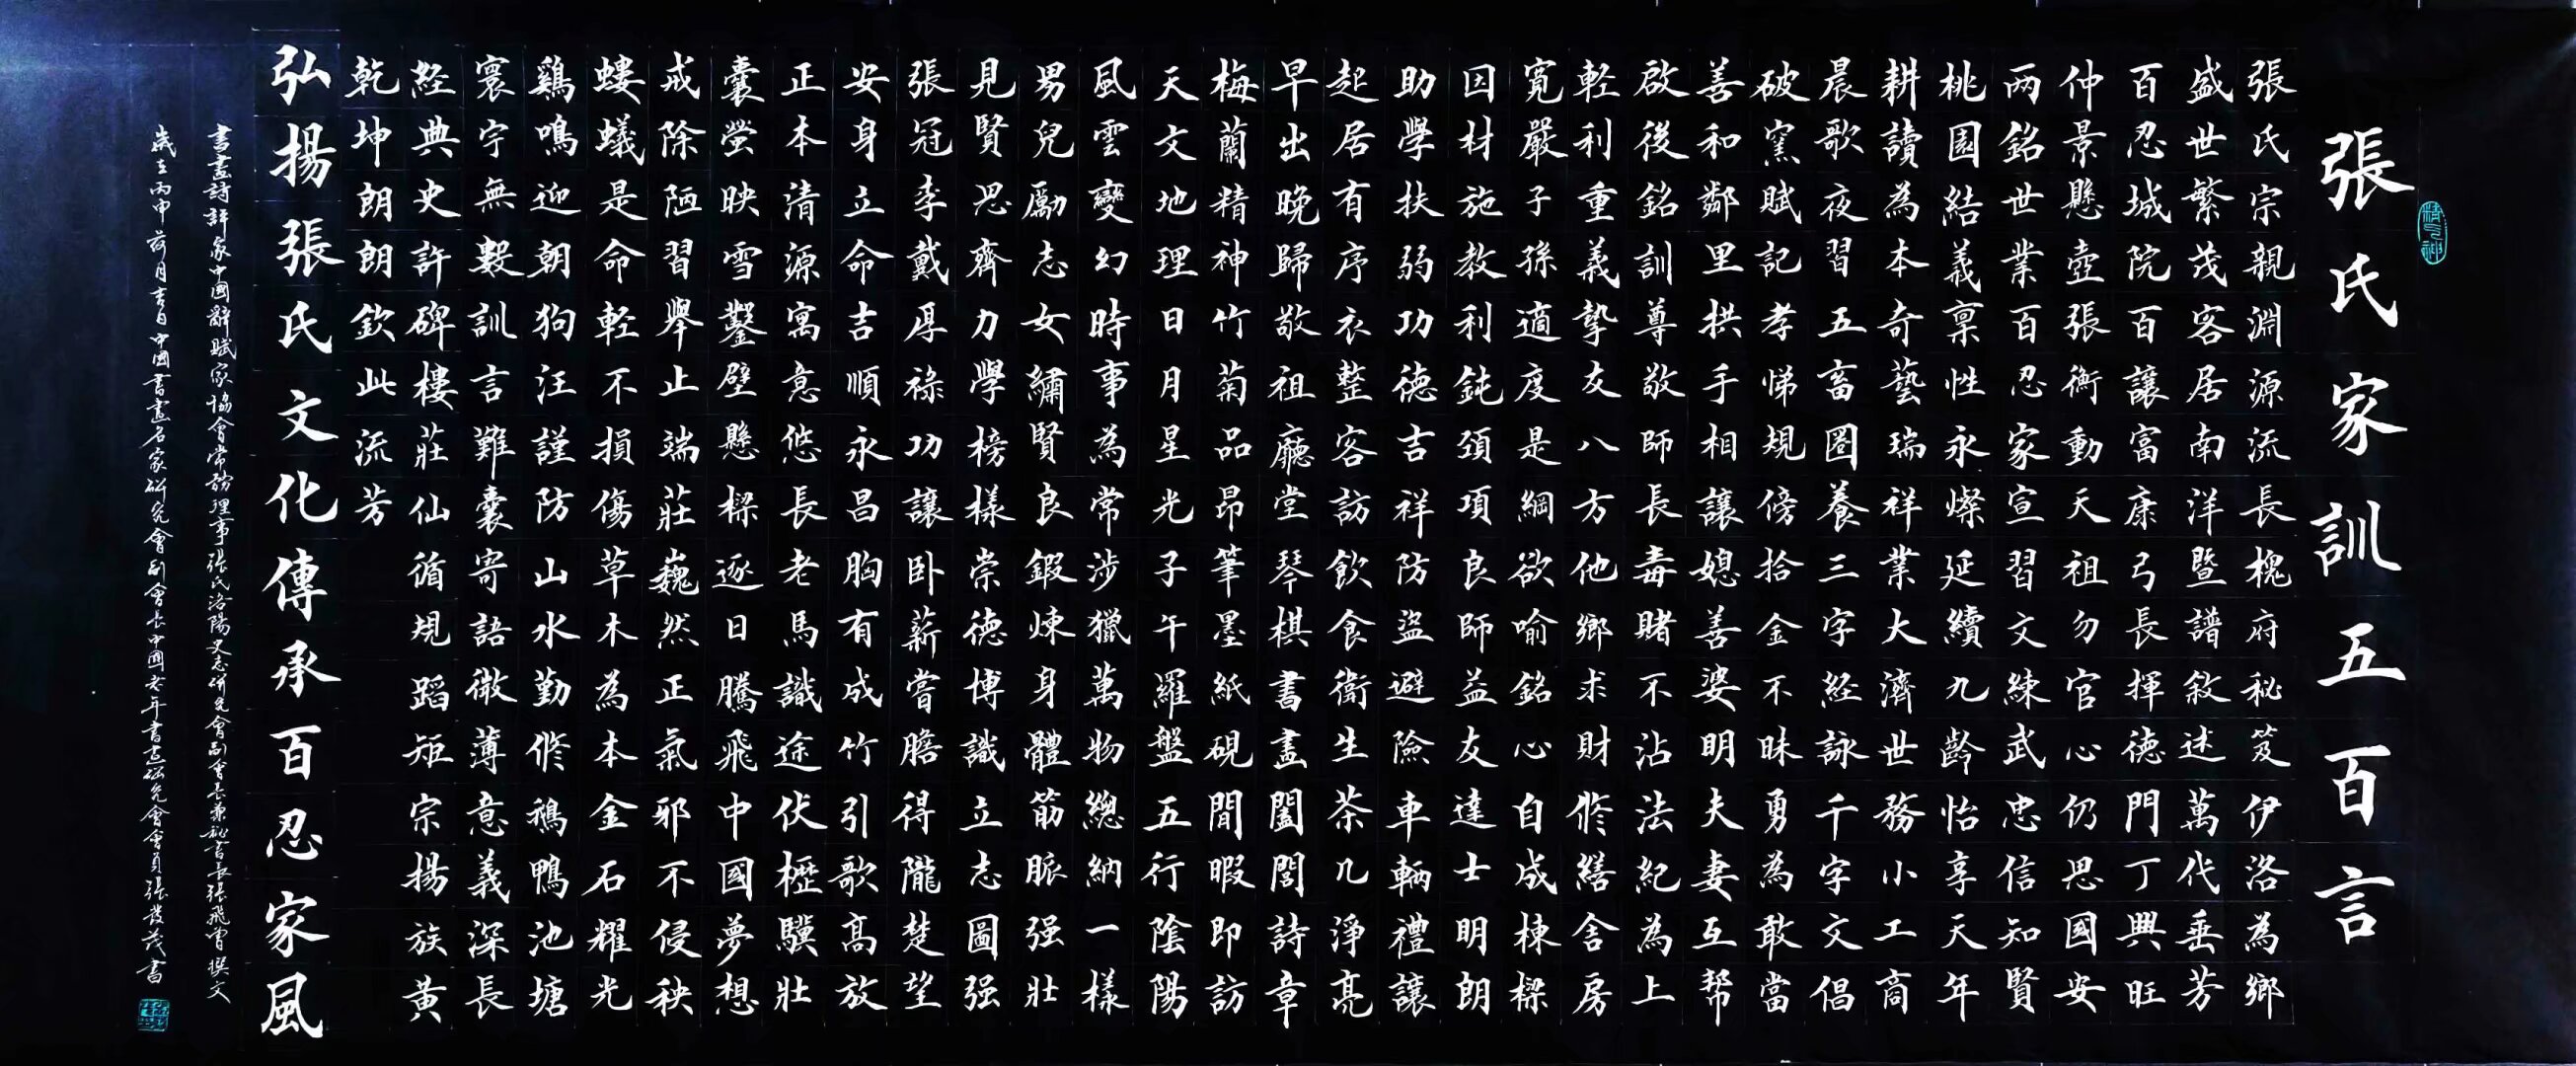 張氏家訓五百言
張氏宗親淵源流長槐府秘笈伊洛為鄉
盛世繁茂客居南洋暨譜敘述萬代垂芳
百忍城院百讓富康弓長揮德門丁興旺
仲景懸壺張衡動天祖勿官心仍思國安
两銘世業百忍家宣習文練武忠信知賢
桃園結義稟性永燦延續九齡怡享天年
耕讀為本奇藝瑞祥業大濟世務小工商
晨歌夜習五畜圈養三字経詠千字文倡
破窯賦記孝悌規傍拾金不昧勇為敢當
善和鄰里拱手相讓媳善婆明夫妻互幇
啟後銘訓尊敬師長毒賭不沾法紀為上
軽利重義摯友八方他鄉求財修繕舍房
寬嚴子孫適度是綱欲喻銘心自成棟樑
因材施教利鈍頚項良師益友達士明朗
助學扶弱功德吉祥防盜避險車輛禮讓
起居有序衣整客訪飲食衛生茶几淨亮
早出晚歸敬祖廳堂琴棋書畫闔閭詩章
梅蘭精神竹菊品昂筆墨紙硯閒暇即訪
天文地理日月星光子午羅盤五行陰陽
風雲變幻時事為常涉獵萬物總納一樣
男兒勵志女繡賢良鍛煉身體筋脈强壯
見賢思齊力學榜樣崇德博識立志圖强
張冠李戴厚祿功讓卧薪嘗膽得隴楚望
安身立命吉順永昌胸有成竹引歌高放
正本清源寓意悠長老馬識途伏櫪驥壯
囊螢映雪鑿壁懸樑逐日騰飛中國夢想
戒除陋習舉止端莊巍然正氣邪不侵秧
螻蟻是命軽不損傷草木為本金石耀光
鷄鳴迎朝狗汪謹防山水勤修鵝鴨池塘
寰宇無數訓言難囊寄語微薄意義深長
経典史許碑樓莊仙循規蹈矩宗揚族黃
乾坤朗朗欽此流芳
弘揚張氏文化傳承百忍家風
書畫詩評家中國辭賦家協會常務理事張氏洛陽文志研究會副會長兼秘書長張飛霄撰文
歲在丙申荷月吉日中國書畫名家研究會副會長中國老年書畫研究會會員張發茂書